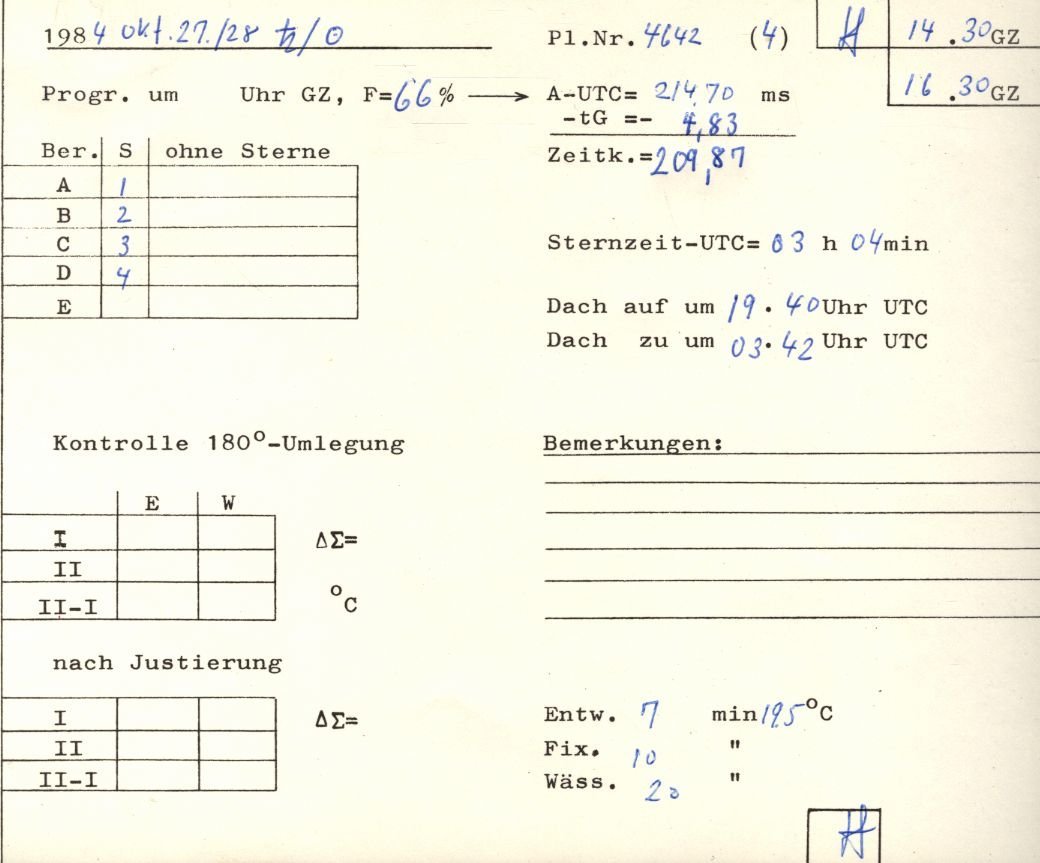 1984 Okt. 27./28 ♄/☉ Pl.Nr. 4642 (4) 14.30 GZ
Progr. um Uhr GZ, F=66% → A-UTC= 214,70 ms 16.30 GZ
-tG =- 4,83
Ber. S ohne Sterne Zeitk.= 209,87
A 1
B 2
C 3 Sternzeit-UTC= 03 h 04min
D 4
E Dach auf um 19.40 Uhr UTC
Dach zu um 03.42 Uhr UTC
Kontrolle 180°-Umlegung Bemerkungen:
E W
I ΔΣ=
II
II-I °C
nach Justierung
I ΔΣ= Entw. 7 min 19,5 °C
II Fix. 10 "
II-I Wäss. 20 "